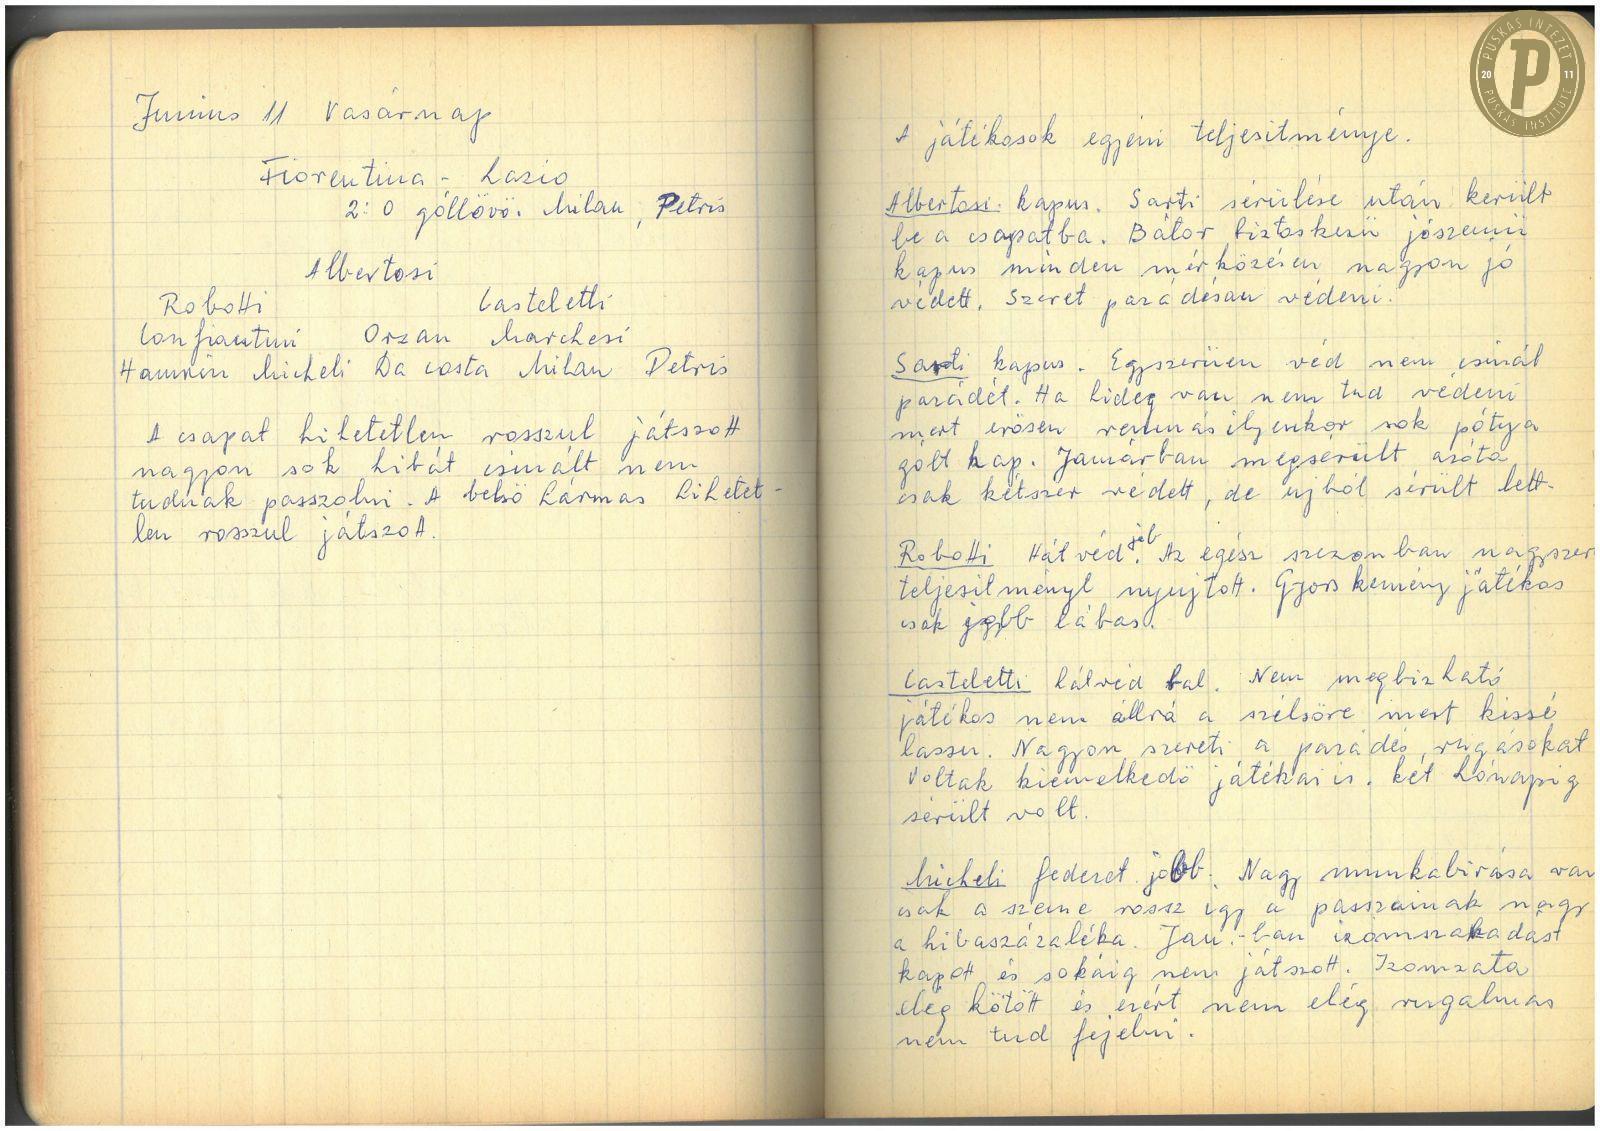 Junius 11 Vasárnap
Fiorentina - Lazio
2:0 góllövö. Milan, Petris
Albertosi
Robotti Casteletti
Confiantini Orzan Marchesi
Hamrin Micheli Da costa Milan Petris
A csapat hihetetlen rosszul játszott
nagyon sok hibát csinált nem
tudnak passzolni. A belsö hármas hihetet-
len rosszul játszott.
A játékosok egyéni teljesitménye.
Albertosi kapus. Sarti sérülése után került
be a csapatba. Bátor biztoskezü jószemü
kapus minden mérközésen nagyon jó
védett. Szeret parádésan védeni.
Sarti kapus. Egyszerüen véd nem csinál
parádét. Ha hideg van nem tud védeni
mert erösen reumás ilyenkor sok pótya
gólt kap. Januárban megsérült azóta
csak kétszer védett, de ujból sérült lett.
Robotti Hátvéd job. Az egész szezonban nagyszerü
teljesitményt nyujtott. Gyors kemény játékos
csak jobb lábas.
Casteletti hátvéd bal. Nem megbizható
játékos nem állrá a szélsöre mert kissé
lassu. Nagyon szereti a parádés rugásokat
Voltak kiemelkedö játékai is. két hónapig
sérült volt.
Micheli fedezet jobb. Nagy munkabirása van
csak a szeme rossz igy a passzainak nagy
a hibaszázaléka. Jan.-ban izomszakadást
kapott és sokáig nem játszott. Izomzata
elég kötött és ezért nem elég rugalmas
nem tud fejelni.
PUSKÁS INTÉZET
20 P 11
PUSKÁS INSTITUTE